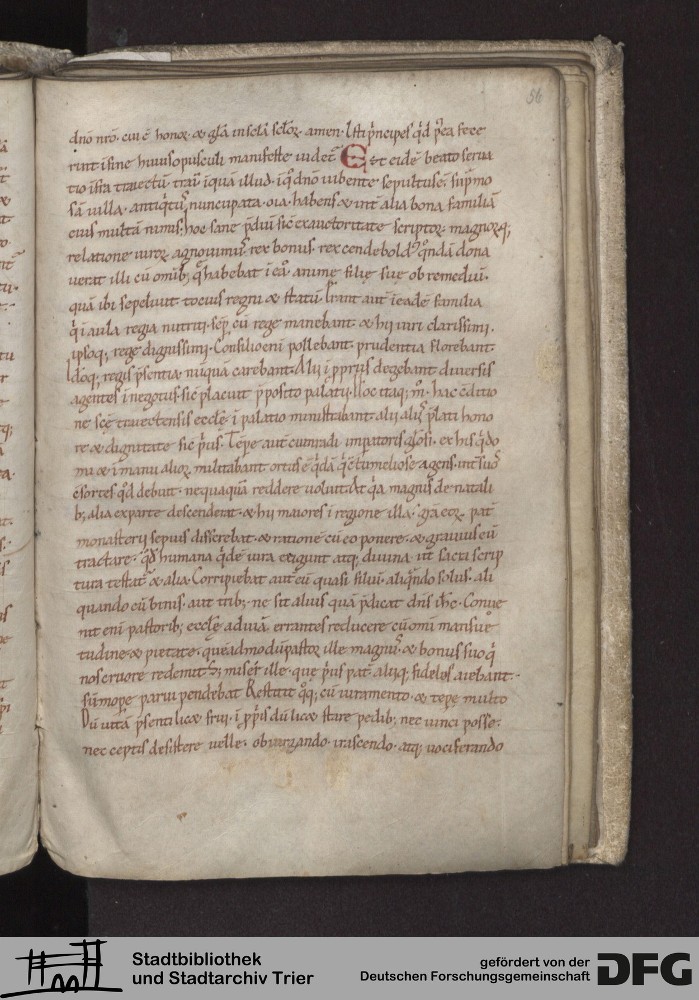 56
dnō nrō. cui ē honor & gl̄a in sc̄la sc̄lor̄. amen. Isti p̄ncipes qd̄ p̄ea fece
rint i fine huius opusculi manifeste uidet̄ Est eidē beato serua
tio illud. dnō iubente sepulture.
sā uilla. antiqt̄us nuncupata. oīa habens. & int̄ alia bona familiā
eius multā nimis. hoc sane p̄diū sic ex auctoritate scriptor̄. magnorq;
relatione uiror̄ agnouimus. rex bonus. rex cendebold' qn̄dā dona
uerat illi cū omib; q̄ habebat i ea. animę filię suę ob remediū.
quā ibi sepeliuit tocius regni & statū. Erant aut̄ i eadē familia
q̄ i aula regia nutriti. sep̄ cū rege manebant. & hii uiri clarissimi.
ipsoq; rege dignissimi. Consilio eni pollebant. prudentia florebant
Idoq; regis p̄sentia nūquā carebant. Alii i p̄priis degebant diuersis
agentes i negotiis. sic placuit p̄posito palatii. Hoc itaq; m̊. hac cditio
ne scē traiectensis ecclę. i palatio ministrabant. alii aliis p̄lati hono
re & dignitate sic p̄us. Tep̄e aut̄ cunradi imp̄atoris gl̄osi. ex his q̄do
mi & i manu alior̄ militabant ortus ē q̄dā q̄ cōtumeliose agens. int̄ suos
cōsortes qd̄ debuit. nequaquā reddere uoluit. At q̄a magnus de natali
b; alia ex parte descenderat. & hii maiores i regione illa. pat̄
monasterii sepius disserebat. & ratione cū eo ponere. & grauius eū
tractare. qd̄ humana qdē iura exigunt atq; diuina. ut sacri scrip
tura testat̄ & alia. Corripiebat aut̄ eū quasi filiū. aliqn̄do solus. ali
quando cū binis. aut trib; ne sit alius quā p̄dicat dn̄s ih̄c. Conue
nit eni pastorib; ecclę ad uiā errantes reducere cū omi mansue
tudine & pietate. quēadmodū pastor ille magnus & bonus suo q̄
nos cruore redemit. S; miser ille. que p̄us pat̄ aliiq; fideles aiebant.
sūmope parui pendebat. Restitit qq; cū iuramento. & tepe multo
Dū uita p̄senti licę frui. i p̄priis dū licę stare pedib; nec uinci posse.
nec ceptis desistere uelle. obiurgando. irascendo. atq; uociferando
Stadtbibliothek
und Stadtarchiv Trier
gefördert von der
Deutschen Forschungsgemeinschaft
DFG